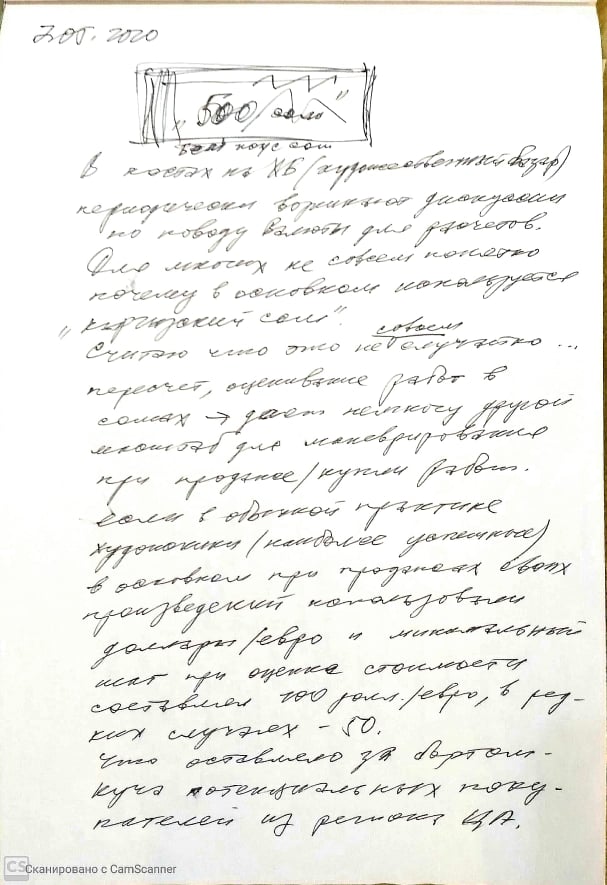 7.05.2020
"500/сом"
В постах на ХБ (художественный базар)
периодически возникают дискуссии
по поводу валюты для расчетов.
Для многих не совсем понятно
почему в основном используется
"кыргызский сом".
совсем
Считаю что это не случайно ...
пересчет, оценивание работ в
сомах → дает немного другой
масштаб для маневрирования
при продаже/купли работ.
если в обычной практике
художники (наиболее успешные)
в основном при продажах своих
произведений использовали
доллары/евро и минимальный
шаг при оценке стоимости
составлял 100 долл./евро, в ред-
ких случаях - 50.
Что оставляло за бортом
кучу потенциальных поку-
пателей из региона ЦА.
CS Сканировано с CamScanner